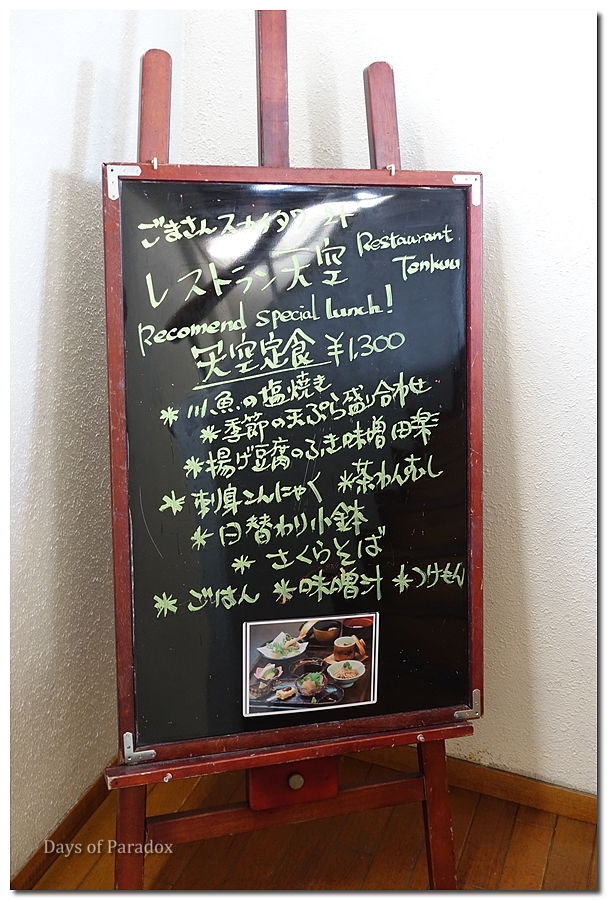 ごまさんスカイタワー1F
レストラン天空 Restaurant Tenkuu
Recomend special lunch!
天空定食 ¥1,300
*川魚の塩焼き
*季節の天ぷら盛り合わせ
*揚げ豆腐のふき味噌田楽
*刺身こんにゃく *茶わんむし
*日替わり小鉢
*さくらそば
*ごはん *味噌汁 *つけもん
Days of Paradox